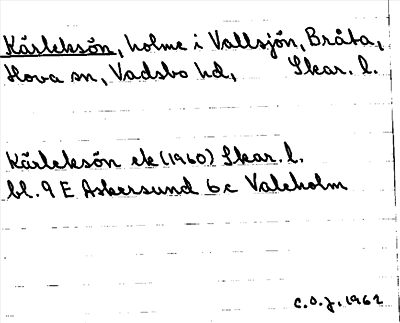 Kärleksön, holme i Vallsjön, Bråta,
Hova sn, Vadsbo hd, Skar. l.
Kärleksön ek (1960) Skar. l.
bl. 9 E Askersund 6 c Valeholm
C.O.J. 1962